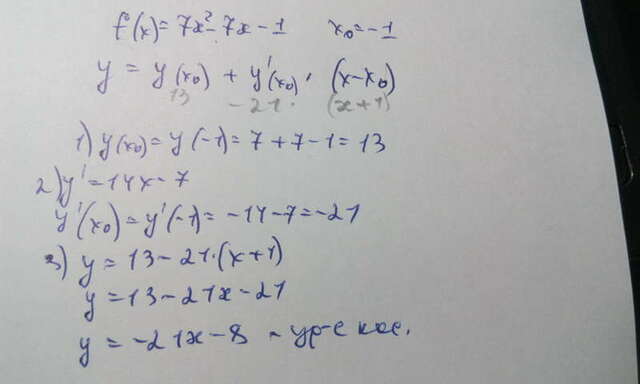 f(x)=7x²-7x-1 x₀=-1
y = y(x₀) + y'(x₀) · (x-x₀)
13 -21· (x+1)
1) y(x₀)=y(-1)=7+7-1=13
2) y'=14x-7
y'(x₀)=y'(-1)=-14-7=-21
3) y=13-21·(x+1)
y=13-21x-21
y=-21x-8 - ур-е кас.